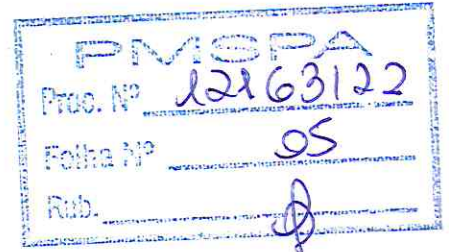 PMSPA
Proc. Nº 12163/22
Folha Nº 05
Rub.